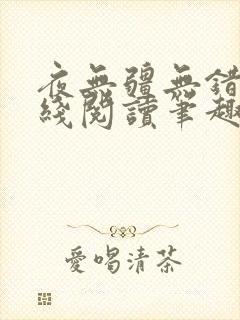 夜無疆無錯
綫閱讀筆趣
愛喝清茶